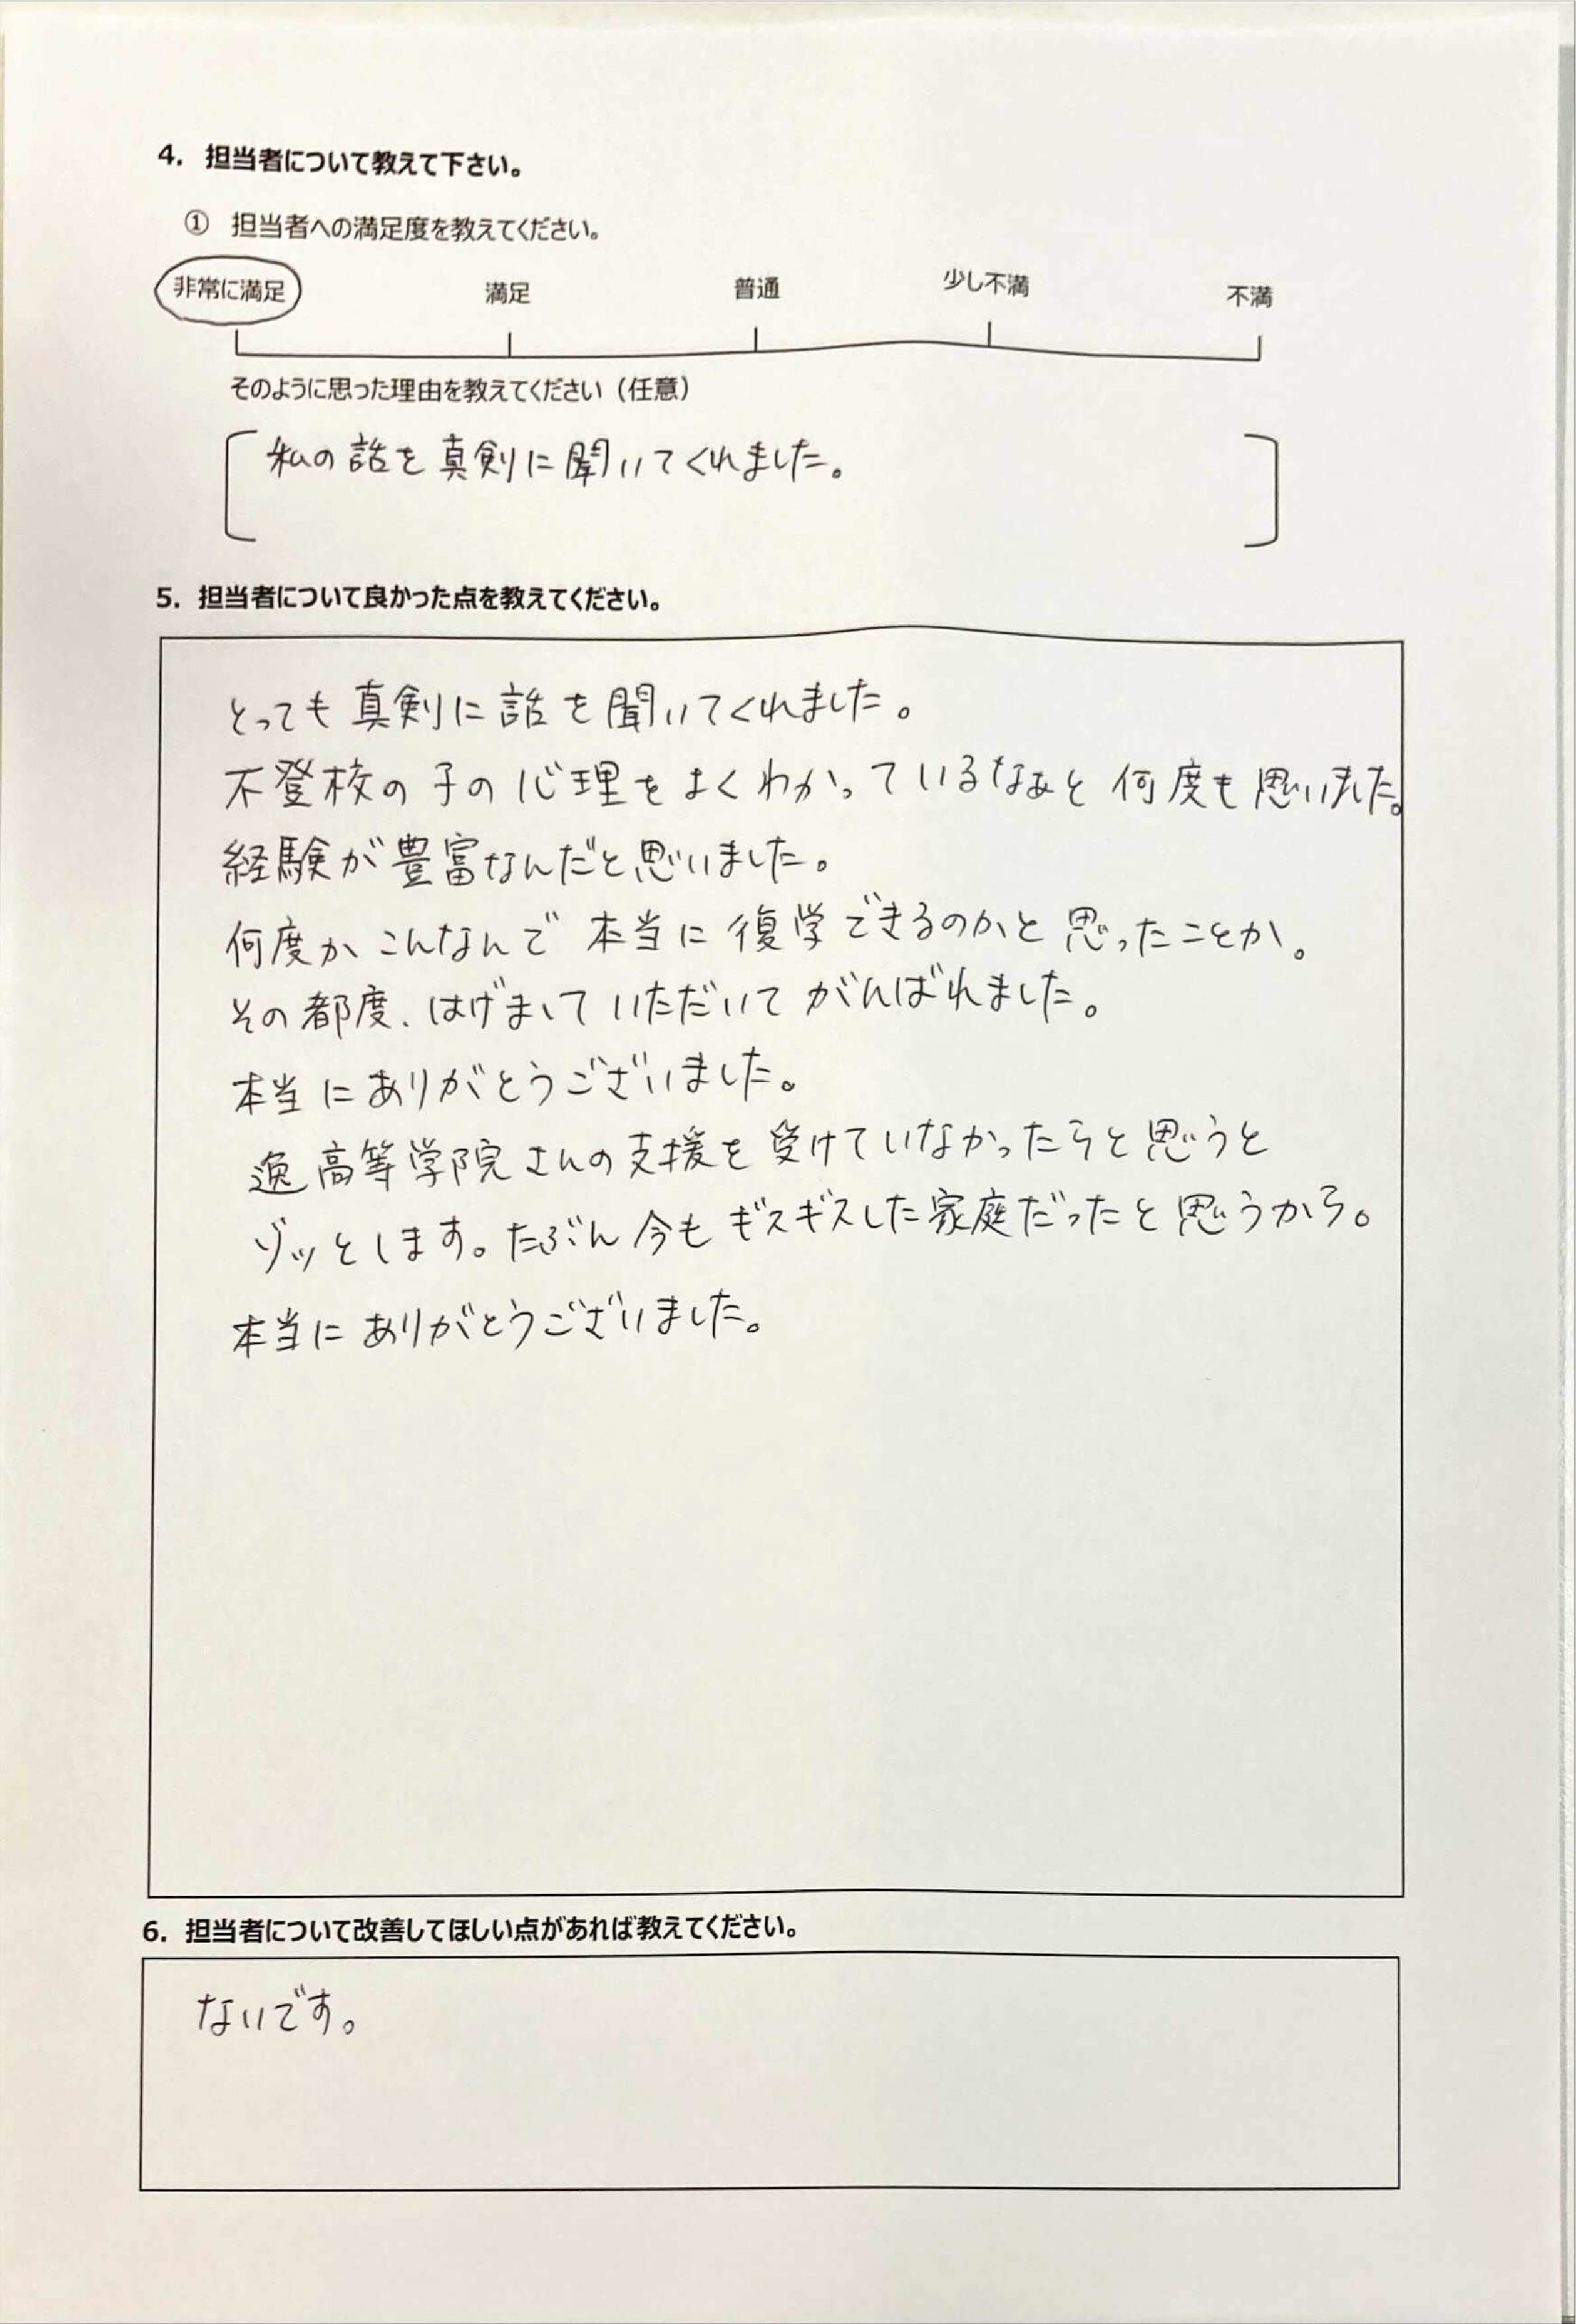 4. 担当者について教えて下さい。
① 担当者への満足度を教えてください。
非常に満足 満足 普通 少し不満 不満
そのように思った理由を教えてください（任意）
私の話を真剣に聞いてくれました。
5. 担当者について良かった点を教えてください。
とっても真剣に話を聞いてくれました。
不登校の子の心理をよくわかっているなぁと何度も思いました。
経験が豊富なんだと思いました。
何度かこんなんで本当に復学できるのかと思ったことか。
その都度、はげましていただいてがんばれました。
本当にありがとうございました。
逸高等学院さんの支援を受けていなかったらと思うと
ゾッとします。たぶん今もギスギスした家庭だったと思うから。
本当にありがとうございました。
6. 担当者について改善してほしい点があれば教えてください。
ないです。